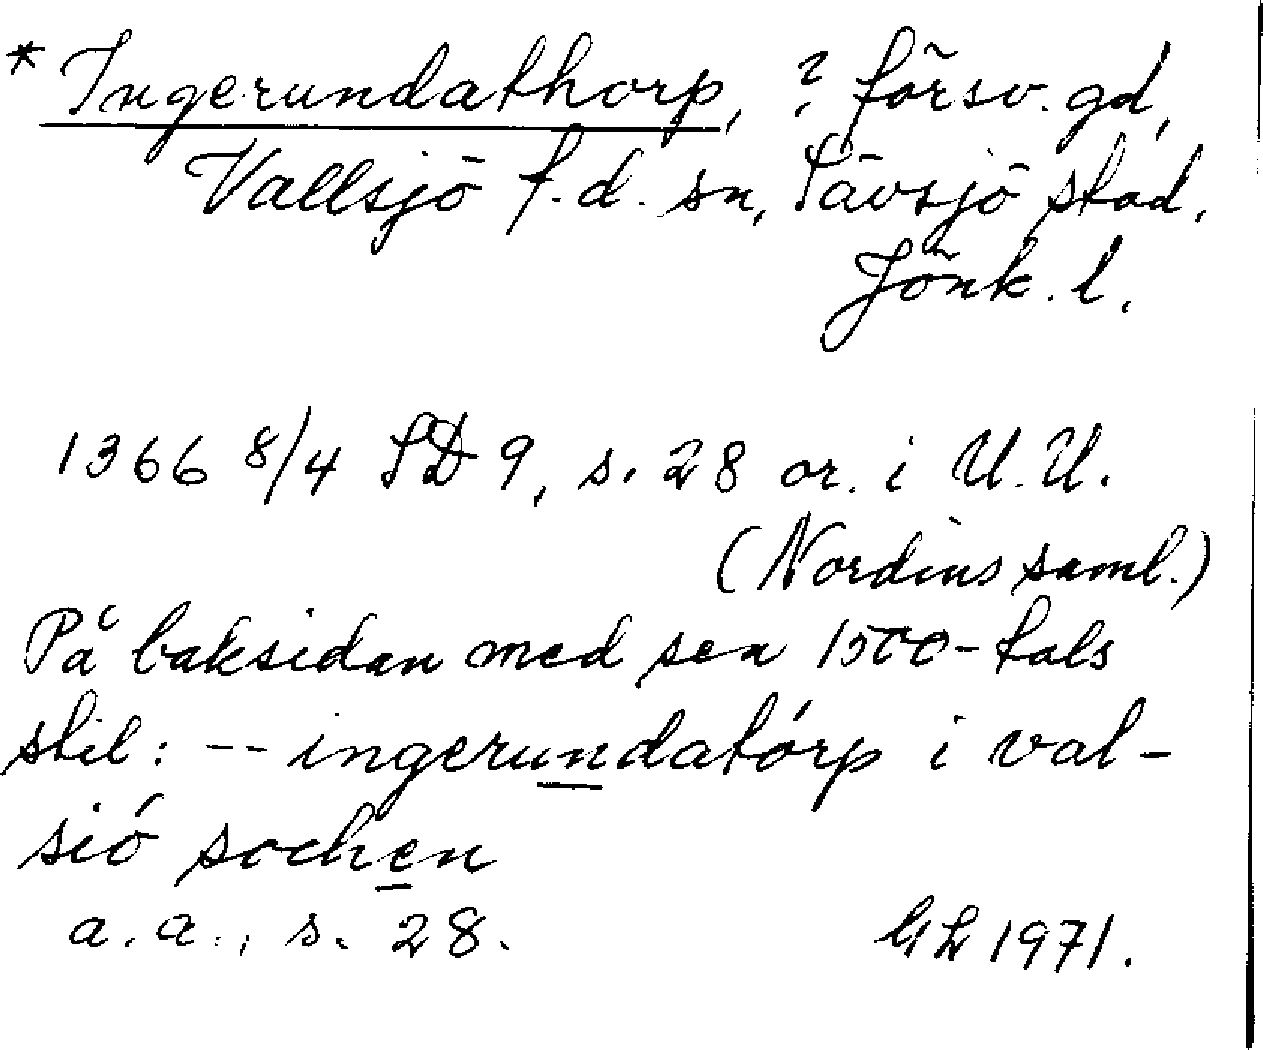 * Ingerundathorp, ? försv. gd,
Vallsjö f.d. sn, Sävsjö stad,
Jönk. l.
1366 8/4 SD 9, s. 28 or. i U.U.
(Nordins saml.)
På baksidan med sen 1500-tals
stil: -- ingerundatórp i val-
sió sochen
a.a., s. 28.
GL 1971.